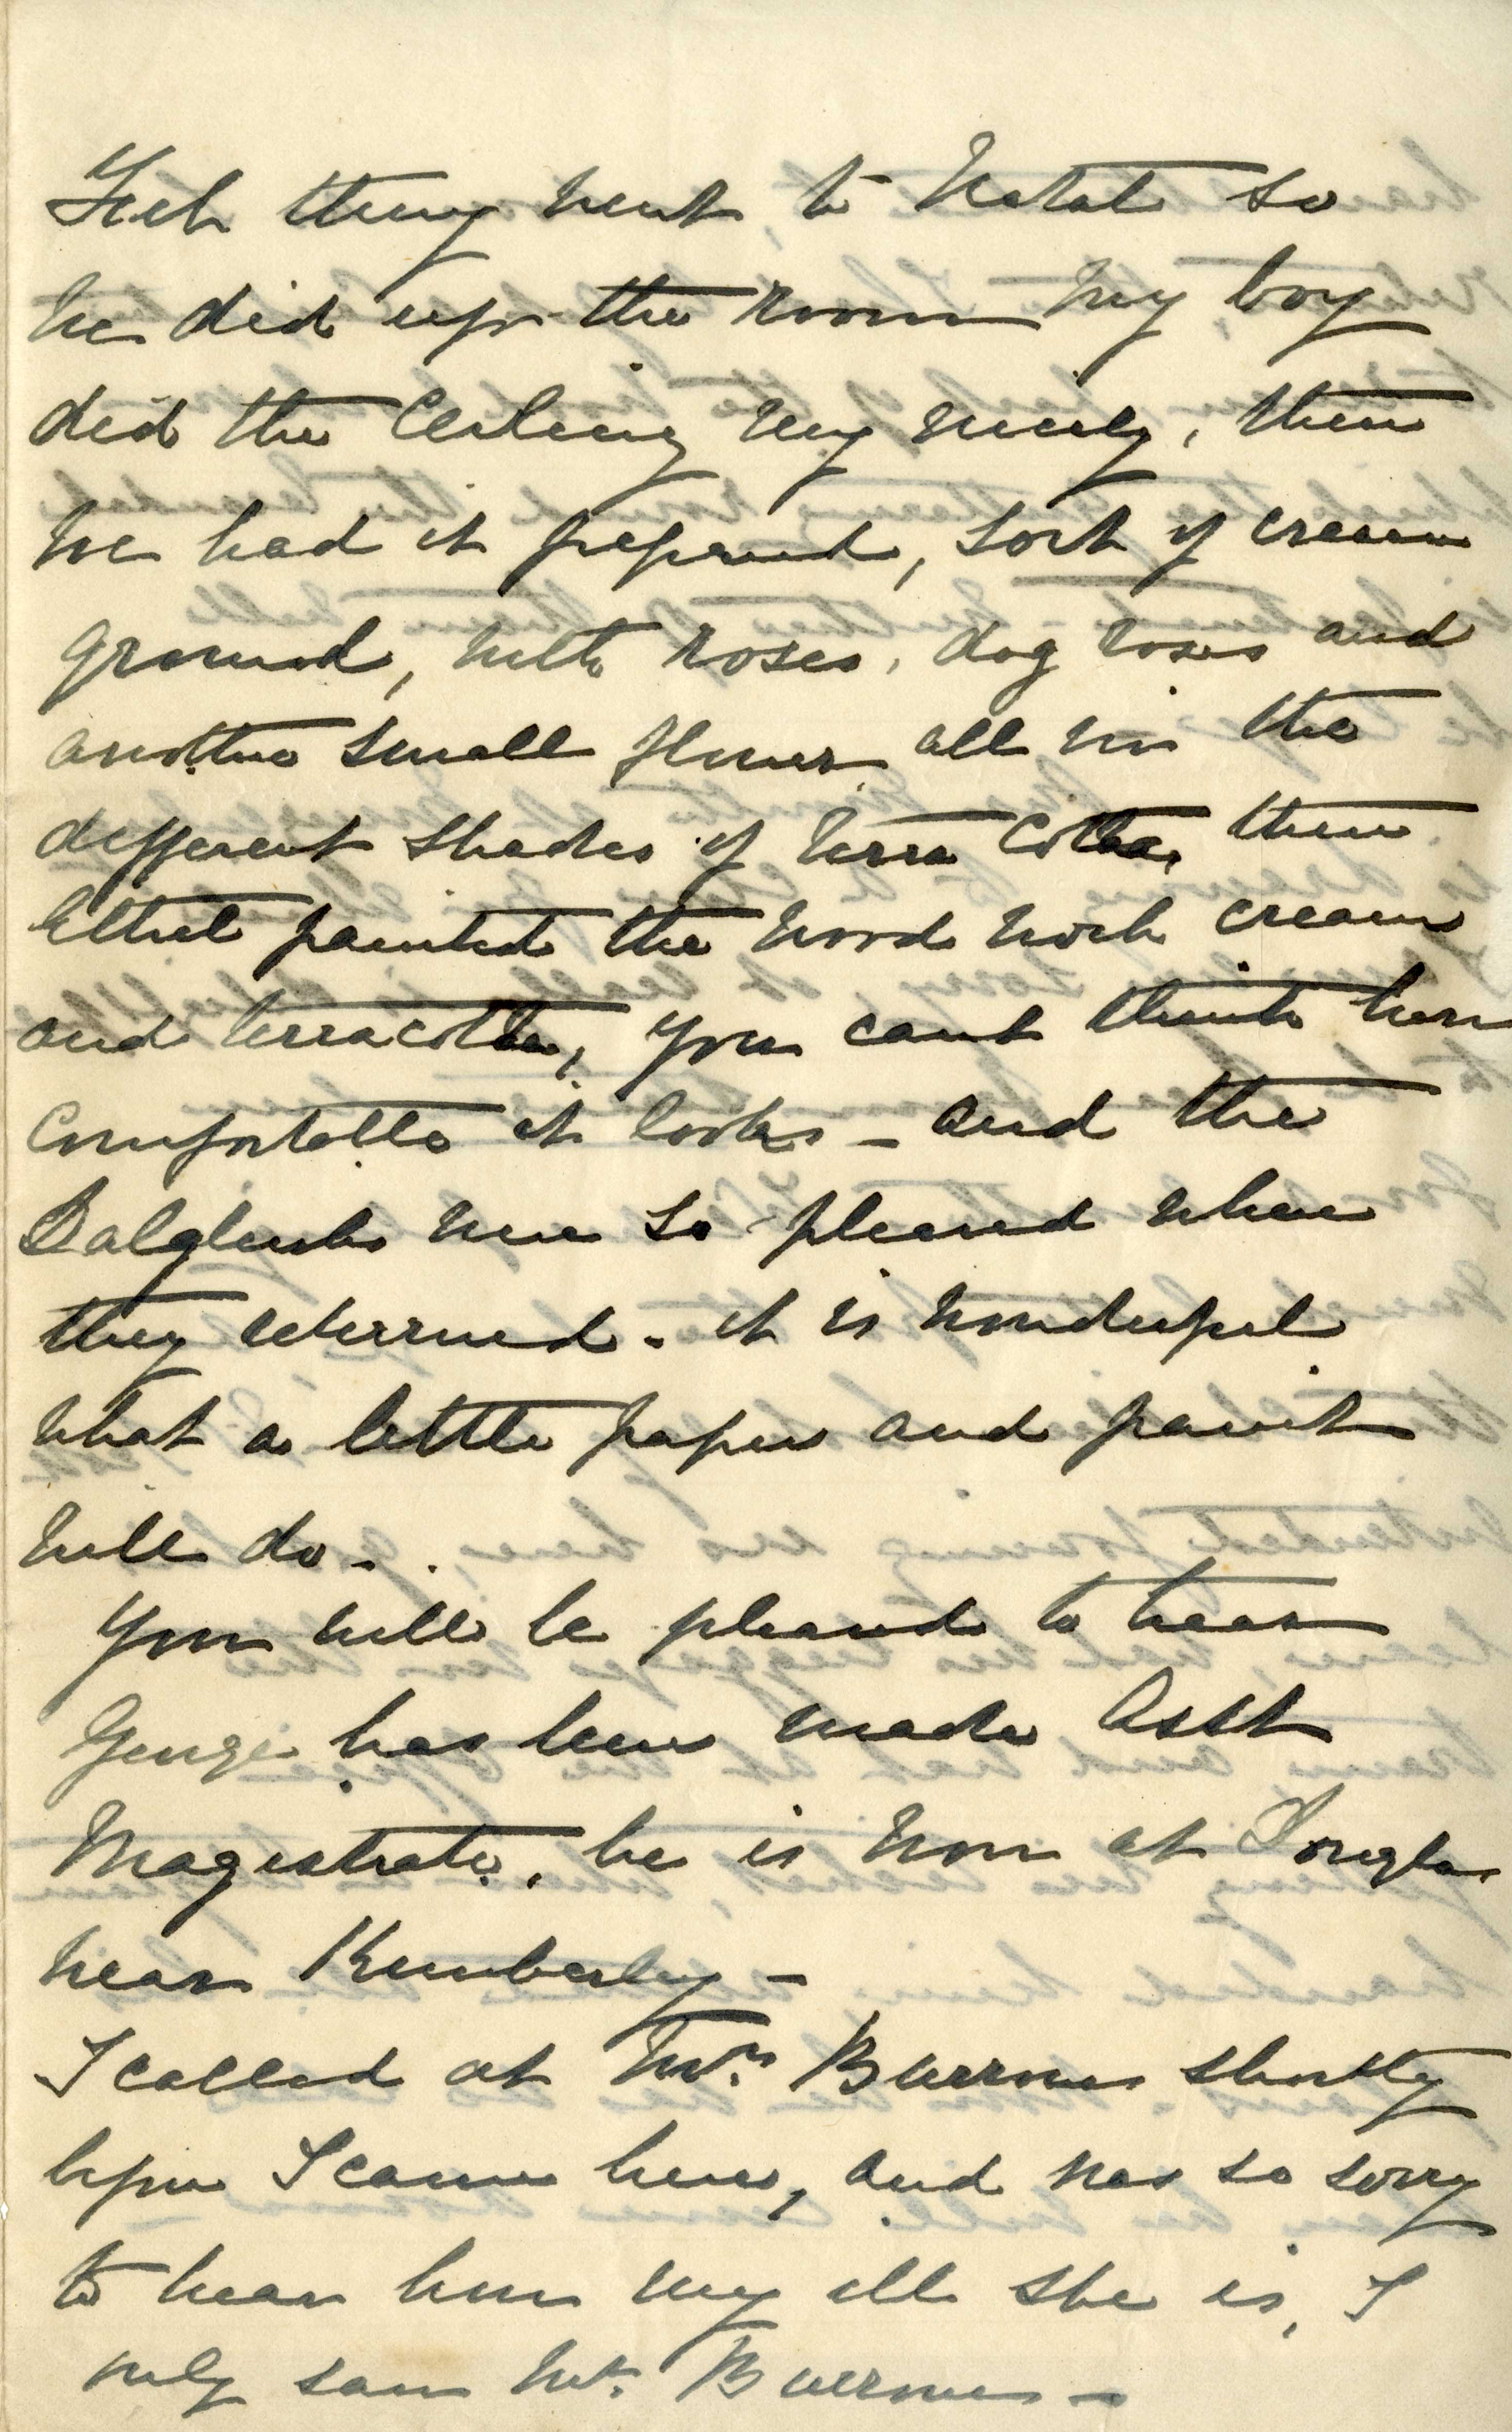 they went to Natal so
we did up the room my boy
did the Ceiling very nicely, then
we had it papered, sort of cream
ground, with roses, dog roses and
another small flower all in the
different shades of terra Cotta, then
Ethel painted the wood work cream
and terracotta, you cant think how
Comfortable it looks - and the
Dalgleishs were so pleased when
they returned - it is wonderful
what a little paper and paint
will do -
You will be pleased to hear
George has been made Asst
Magistrate, he is now at Douglas
near Kimberley -
I called at Mrs Burrows shortly
before I came here, and was so sorry
to hear how very ill she is, I
only saw Mr. Burrows -